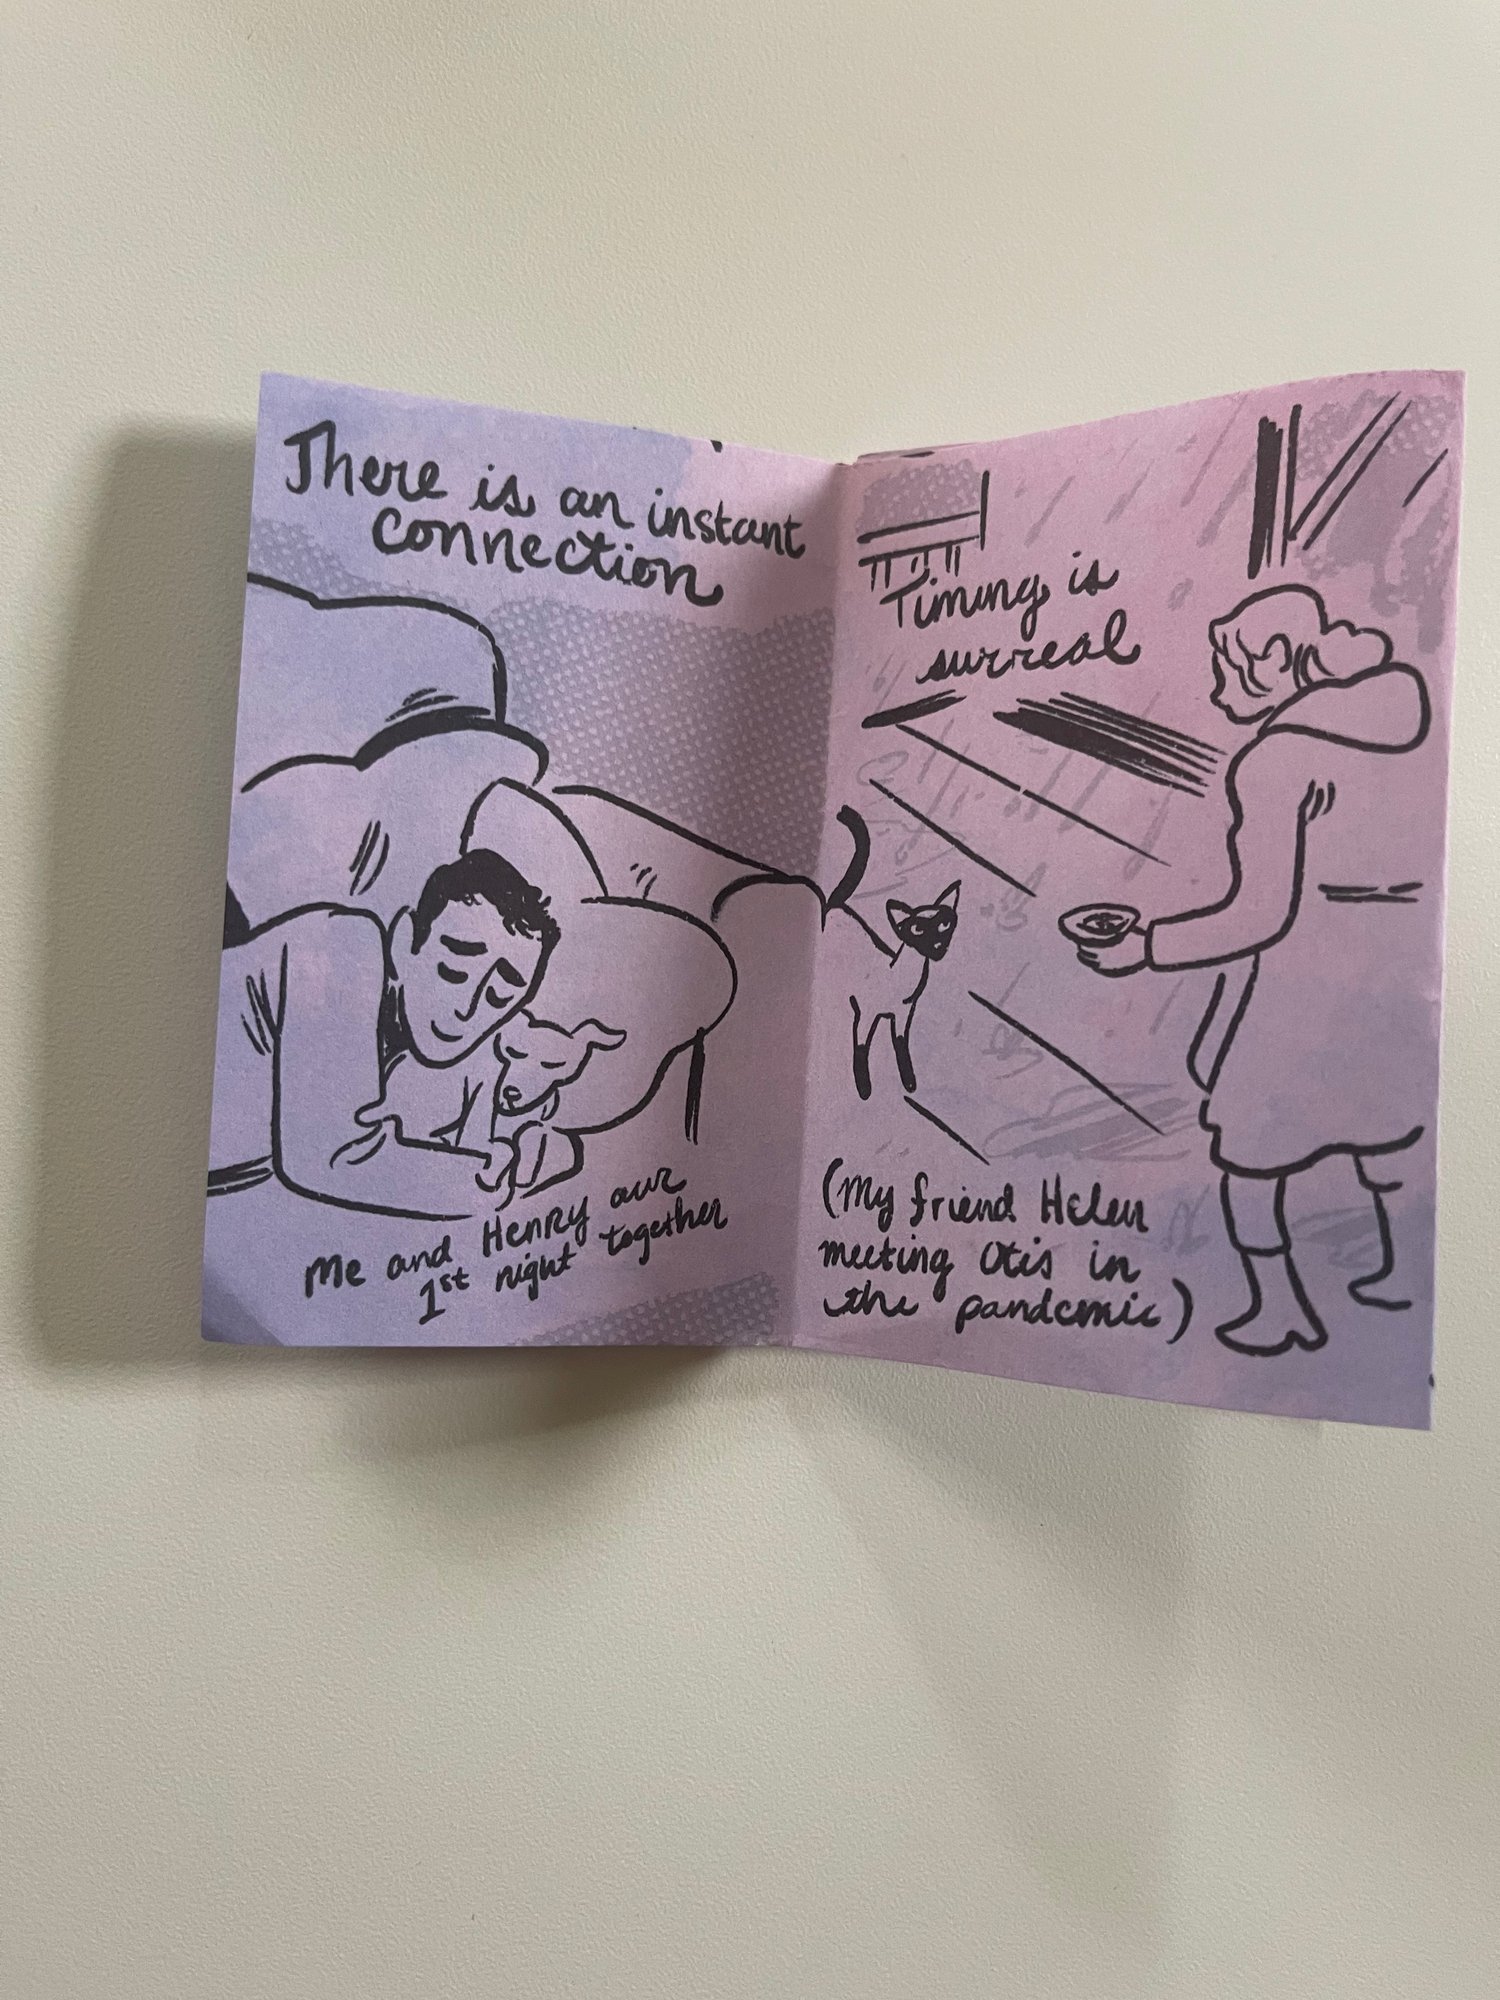 There is an instant
connection
Me and Henry our
1st night together
Timing is
surreal
(My friend Helen
meeting Otis in
the pandemic)